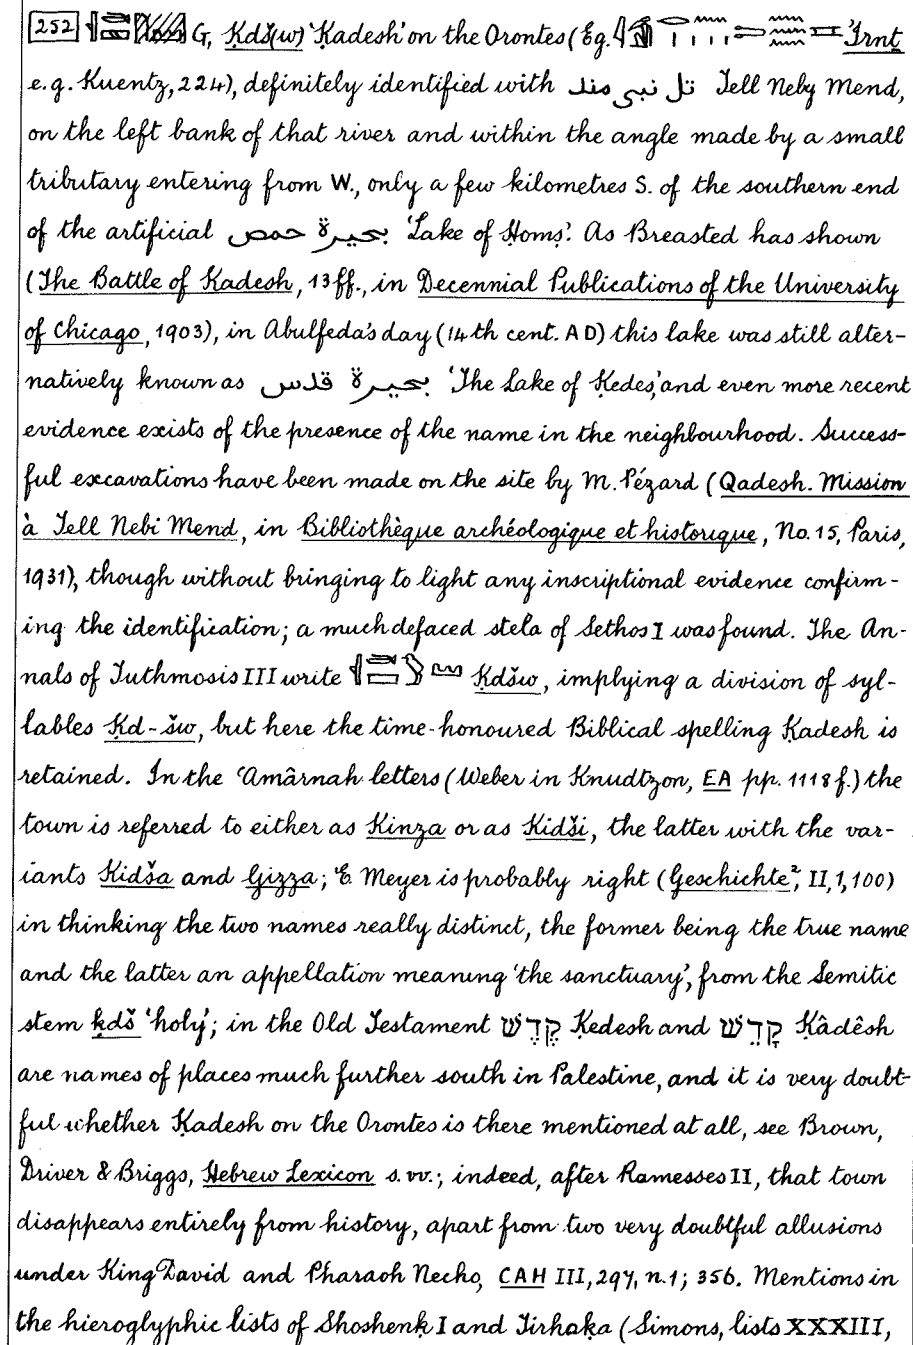 252 G, Ḳdš(w) 'Kadesh' on the Orontes (Eg. 'Irnṯ
e.g. Kuentz, 224), definitely identified with تل نبي مند Tell Neby Mend,
on the left bank of that river and within the angle made by a small
tributary entering from W., only a few kilometres S. of the southern end
of the artificial بحيرة حمص 'Lake of Ḥomṣ'. As Breasted has shown
(The Battle of Kadesh, 13ff., in Decennial Publications of the University
of Chicago, 1903), in Abulfeda's day (14th cent. AD) this lake was still alter-
natively known as بحيرة قدس 'The Lake of Ḳedes', and even more recent
evidence exists of the presence of the name in the neighbourhood. Success-
ful excavations have been made on the site by M. Pézard (Qadesh. Mission
à Tell Nebi Mend, in Bibliothèque archéologique et historique, No. 15, Paris,
1931), though without bringing to light any inscriptional evidence confirm-
ing the identification; a much defaced stela of Sethos I was found. The An-
nals of Tuthmosis III write Ḳdšw, implying a division of syl-
lables Ḳd-šw, but here the time-honoured Biblical spelling Ḳadesh is
retained. In the 'Amârnah letters (Weber in Knudtzon, EA pp. 1118 f.) the
town is referred to either as Kinza or as Kidši, the latter with the var-
iants Kidša and Gizza; E. Meyer is probably right (Geschichte², II, 1, 100)
in thinking the two names really distinct, the former being the true name
and the latter an appellation meaning 'the sanctuary', from the Semitic
stem ḳdš 'holy'; in the Old Testament קֶדֶשׁ Ḳedesh and קָדֵשׁ Ḳâdêsh
are names of places much further south in Palestine, and it is very doubt-
ful whether Ḳadesh on the Orontes is there mentioned at all, see Brown,
Driver & Briggs, Hebrew Lexicon s.vv.; indeed, after Ramesses II, that town
disappears entirely from history, apart from two very doubtful allusions
under King David and Pharaoh Necho, CAH III, 297, n.1; 356. Mentions in
the hieroglyphic lists of Shoshenḳ I and Tirhaḳa (Simons, lists XXXIII,